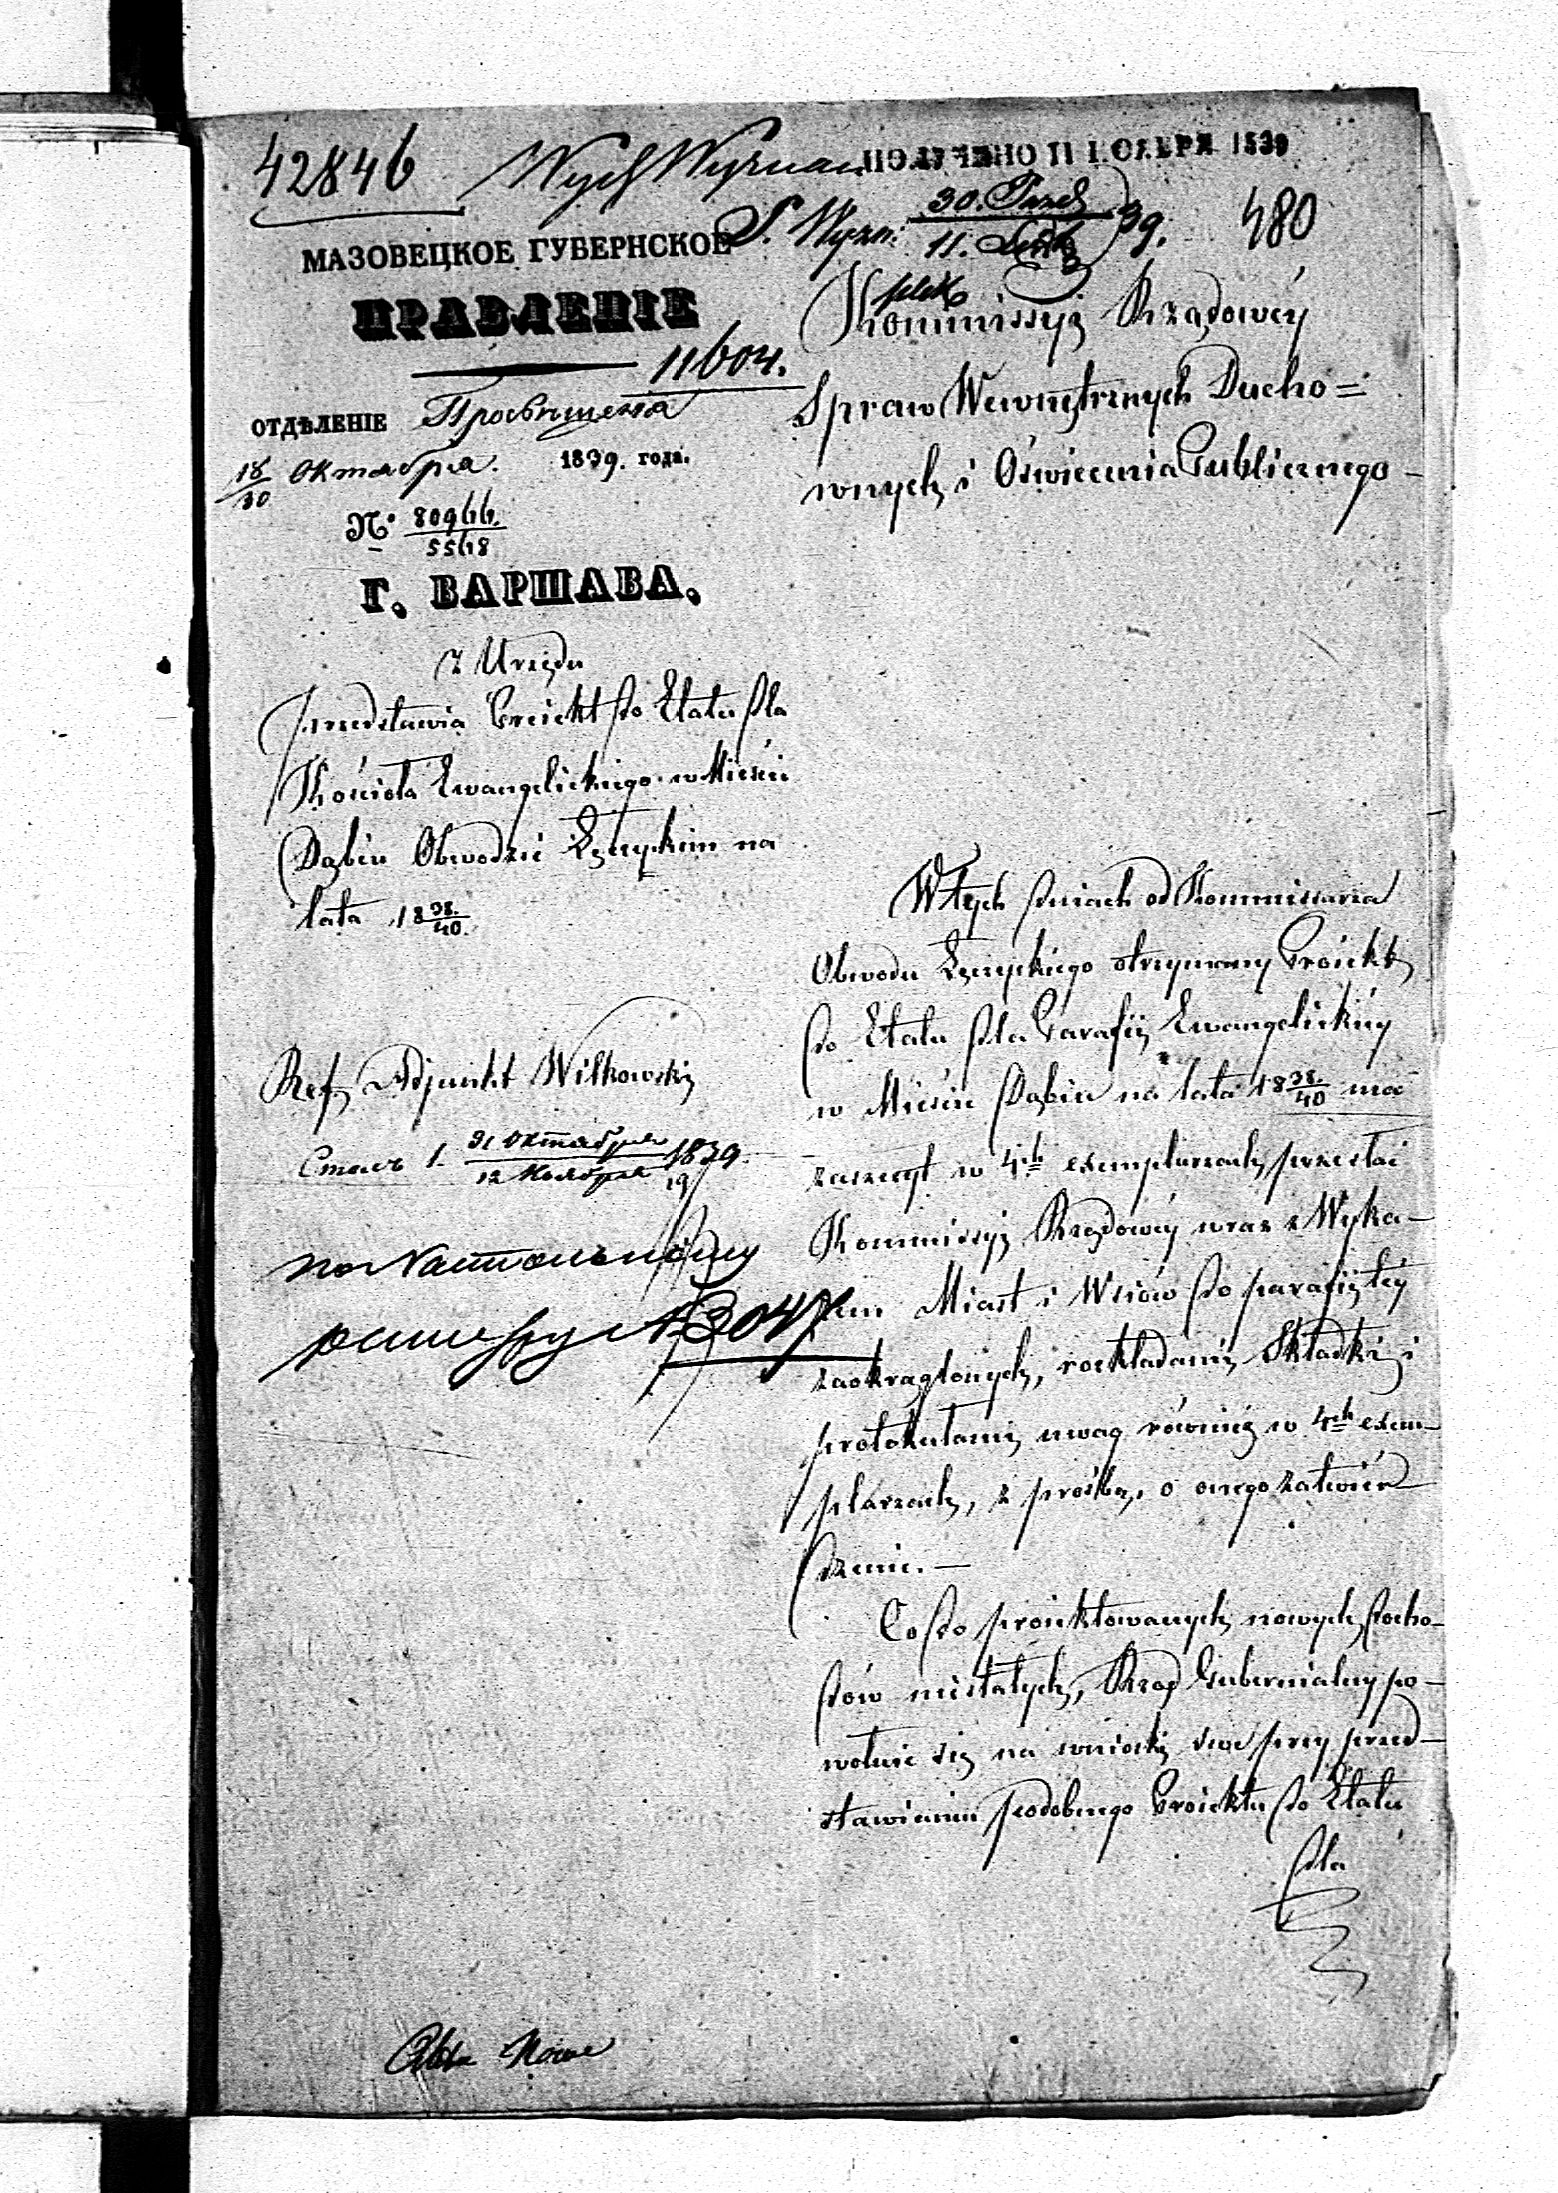 42846
Wydz Wyznań
ПОЛУЧЕНО 11 НОЯБРЯ 1839
S. Wyzn: 30. Paźd / 11. 39.
480
МАЗОВЕЦКОЕ ГУБЕРНСКОЕ
ПРАВЛЕНІЕ
11604.
ОТДѢЛЕНІЕ Просвѣщенія
18/30 Октября. 1839. года.
№ 80966. / 5568
Г. ВАРШАВА.
Z Urzędu
Przedstawia Proiekt do Etatu dla
Kościoła Ewangelickiego w Mieście
Dąbiu Obwodzie Łęczyckim na
lata 18 38./40.
Ref. Adjunkt Wilkowski
1. 31 Октября / 12 Ноября 1839
по Настольному
реэстру № 3047
Akta Nowe
Kommissyi Rządowéy
Spraw Wewnętrznych Ducho=
wnych i Oświecenia Publicznego
W tych dniach od Kommissarza
Obwodu Łęczyckiego otrzymany Proiekt
do Etatu dla Parafii Ewangelickiéy
w Mieście Dąbiu na lata 18 38./40 ma
zaszczyt w 4ch exemplarzach przesłać
Kommissyi Rządowéy wraz z Wyka-
zem Miast i Wsiów do parafii téy
zaokrąglonych, rozkładami Składki i
protokułami uwag również w 4ch exem-
plarzach, z prośbą, o onego zatwier-
dzenie.—
Co do proiektowanych nowych docho-
dów niestałych, Rząd Gubernialny po-
wołuie się na wnioski swe przy przed-
stawieniu podobnego Proiektu do Etatu
dla